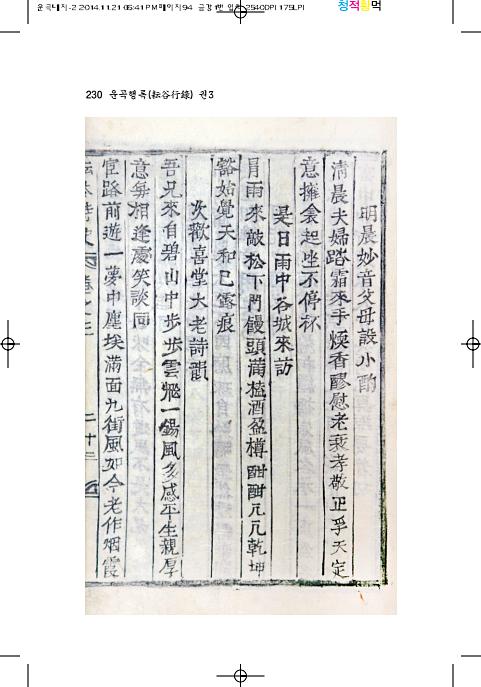 청적황먹
230 운곡행록(耘谷行錄) 권3
明晨妙音父母設小酌
淸晨夫婦踏霜來手煖香醪慰老衰孝敬正孚天定
意擁衾起坐不停杯
是日雨中谷城來訪
冒雨來敲松下門饅頭滿榼酒盈樽酣酣兀兀乾坤
豁始覺天和已露痕
次歡喜堂大老詩韻
吾兄來自碧山中步步雲㢠一錫風多感平生親厚
意每相逢處笑談同
宦路前遊一夢中塵埃滿面九街風如今老作烟霞
二十三